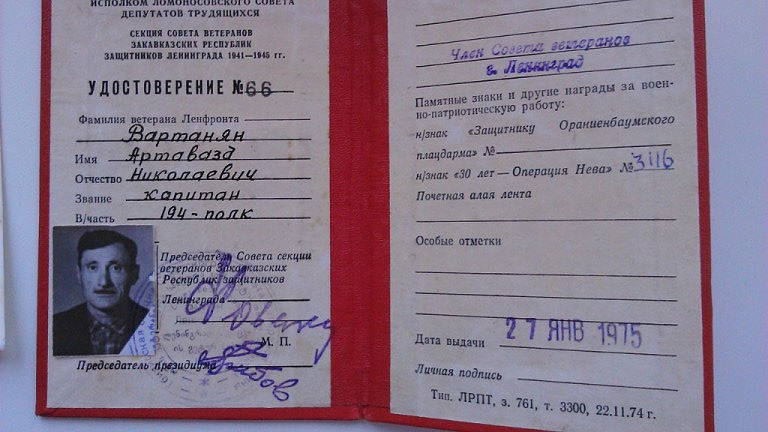 ИСПОЛКОМ ЛОМОНОСОВСКОГО СОВЕТА
ДЕПУТАТОВ ТРУДЯЩИХСЯ
СЕКЦИЯ СОВЕТА ВЕТЕРАНОВ
ЗАКАВКАЗСКИХ РЕСПУБЛИК
ЗАЩИТНИКОВ ЛЕНИНГРАДА 1941—1945 гг.
УДОСТОВЕРЕНИЕ №66
Фамилия ветерана Ленфронта
Вартанян
Имя Артавазд
Отчество Николаевич
Звание капитан
В/часть 194-полк
Председатель Совета секции
ветеранов Закавказских
Республик защитников
Ленинграда
М. П.
Председатель президиума
Член Совета ветеранов
г. Ленинград
Памятные знаки и другие награды за воен-
но-патриотическую работу:
н/знак «Защитнику Ораниенбаумского
плацдарма» №
н/знак «30 лет — Операция Нева» №3116
Почетная алая лента
Особые отметки
Дата выдачи 27 ЯНВ 1975
Личная подпись
Тип. ЛРПТ, з. 761, т. 3300, 22.11.74 г.